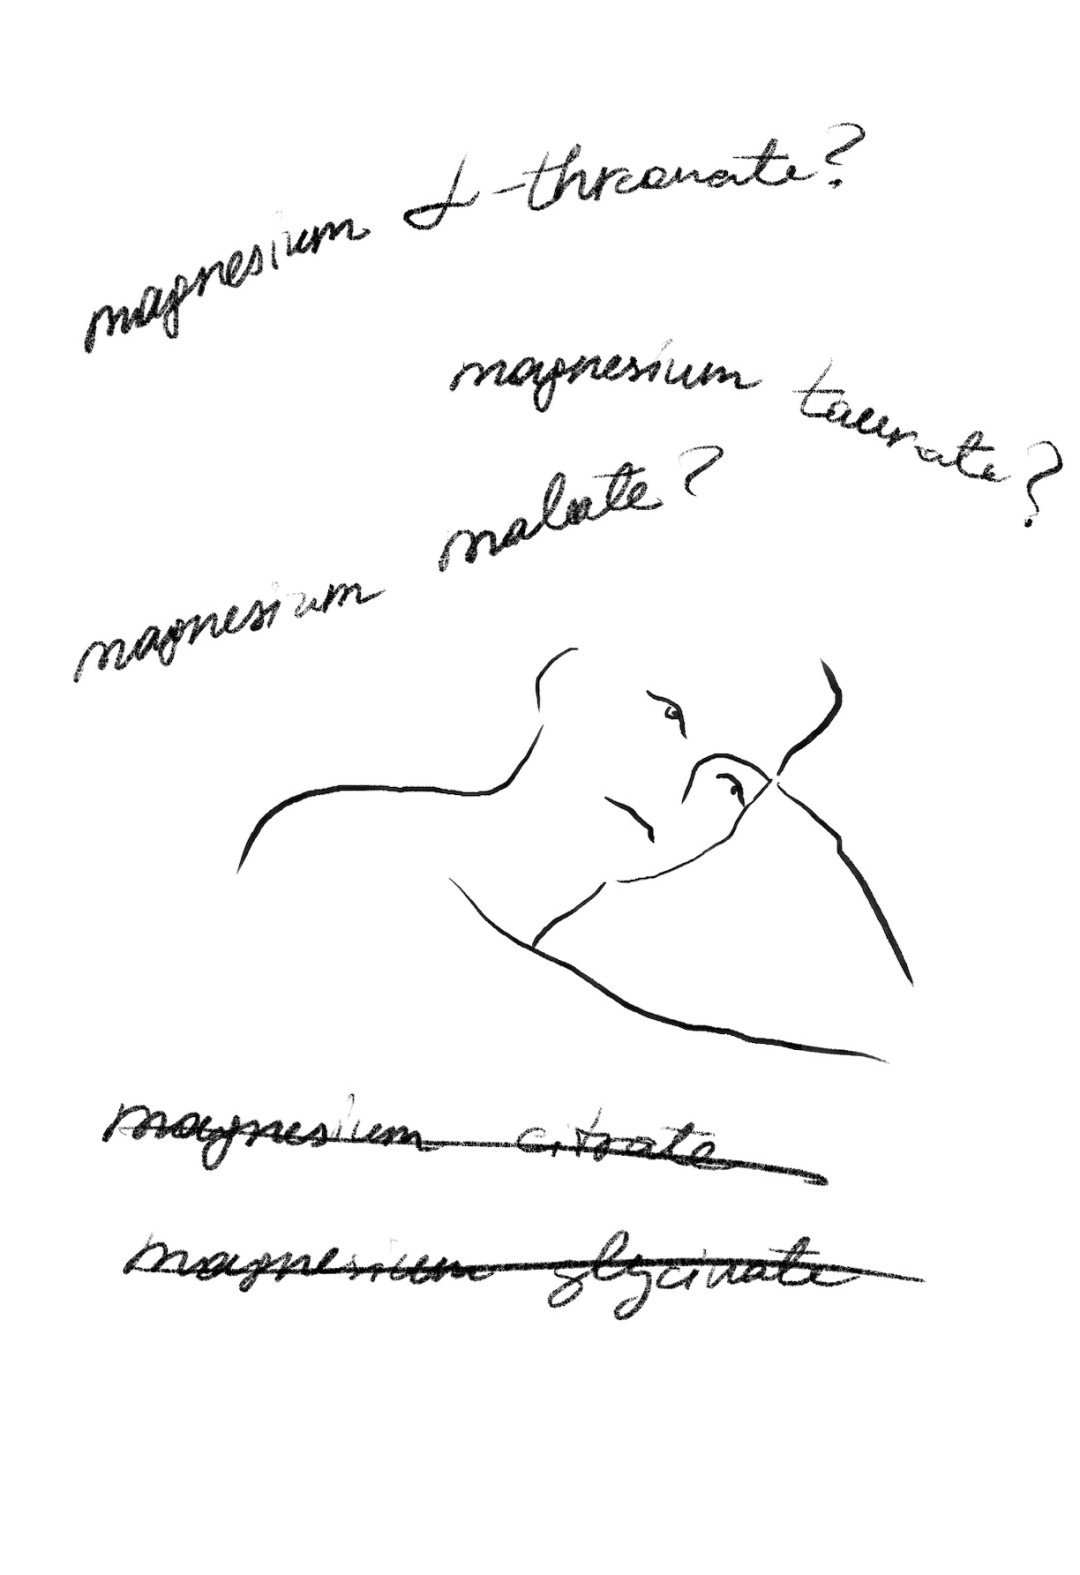 magnesium L-threonate?
magnesium taurate?
magnesium malate?
magnesium citrate
magnesium glycinate